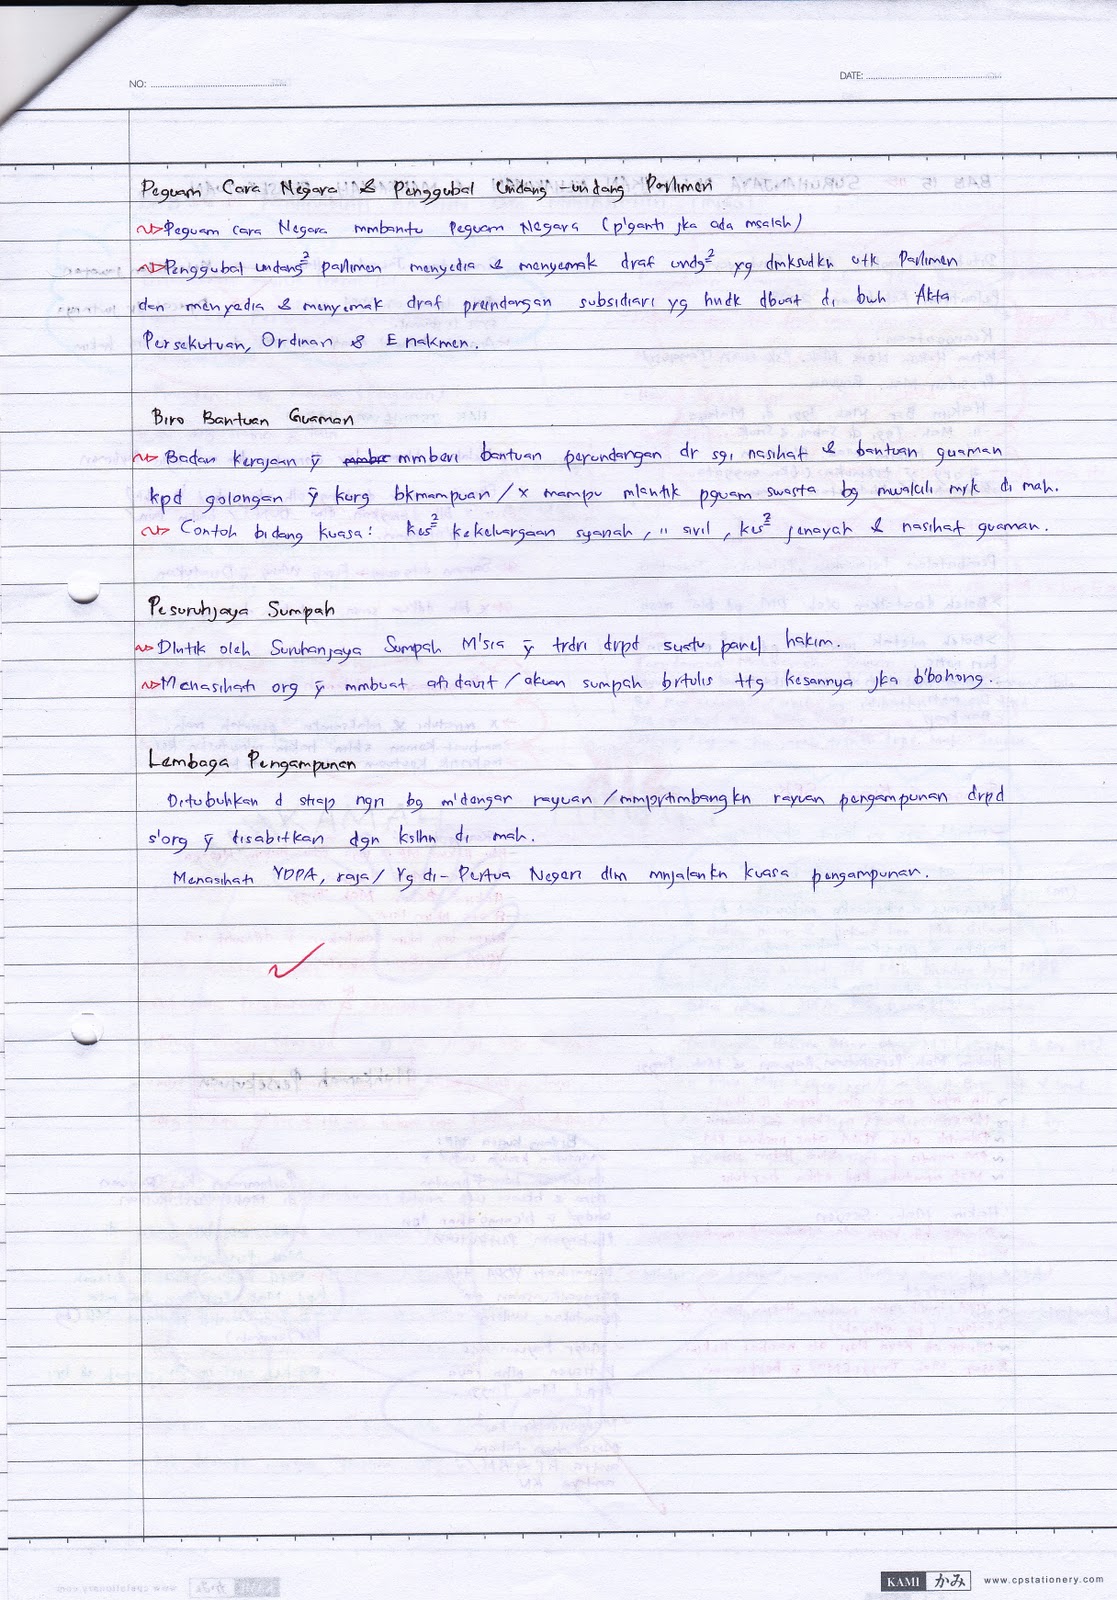 NO:
DATE:
Peguam Cara Negara & Penggubal Undang-undang Parlimen
Peguam cara Negara mmbantu Peguam Negara (p'ganti jka ada msalah)
Penggubal undang² parlimen menyedia & menyemak draf undg² yg dmksudkn utk Parlimen
dan menyedia & menyemak draf preundangan subsidiari yg hndk dbuat di bwh Akta
Persekutuan, Ordinan & Enakmen.
Biro Bantuan Guaman
Badan kerajaan ȳ mmberi bantuan perundangan dr sgi nasihat & bantuan guaman
kpd golongan ȳ kurg bkmampuan / x mampu mlantik pguam swasta bg mwakili mrk di mah.
Contoh bidang kuasa: kes² kekeluargaan syariah, " sivil, kes² jenayah & nasihat guaman.
Pesuruhjaya Sumpah
Dlntik oleh Suruhanjaya Sumpah M'sia ȳ trdri drpd suatu panel hakim.
Menasihati org ȳ mmbuat afidavit / akuan sumpah brtulis ttg kesannya jka b'bohong.
Lembaga Pengampunan
Ditubuhkan d stiap ngri bg m'dengar rayuan / mmprtimbangkn rayuan pengampunan drpd
s'org ȳ disabitkan dgn kslhn di mah.
Menasihati YDPA, raja / Yg di-Pertua Negeri dlm mnjalankn kuasa pengampunan.
KAMI かみ www.cpstationery.com